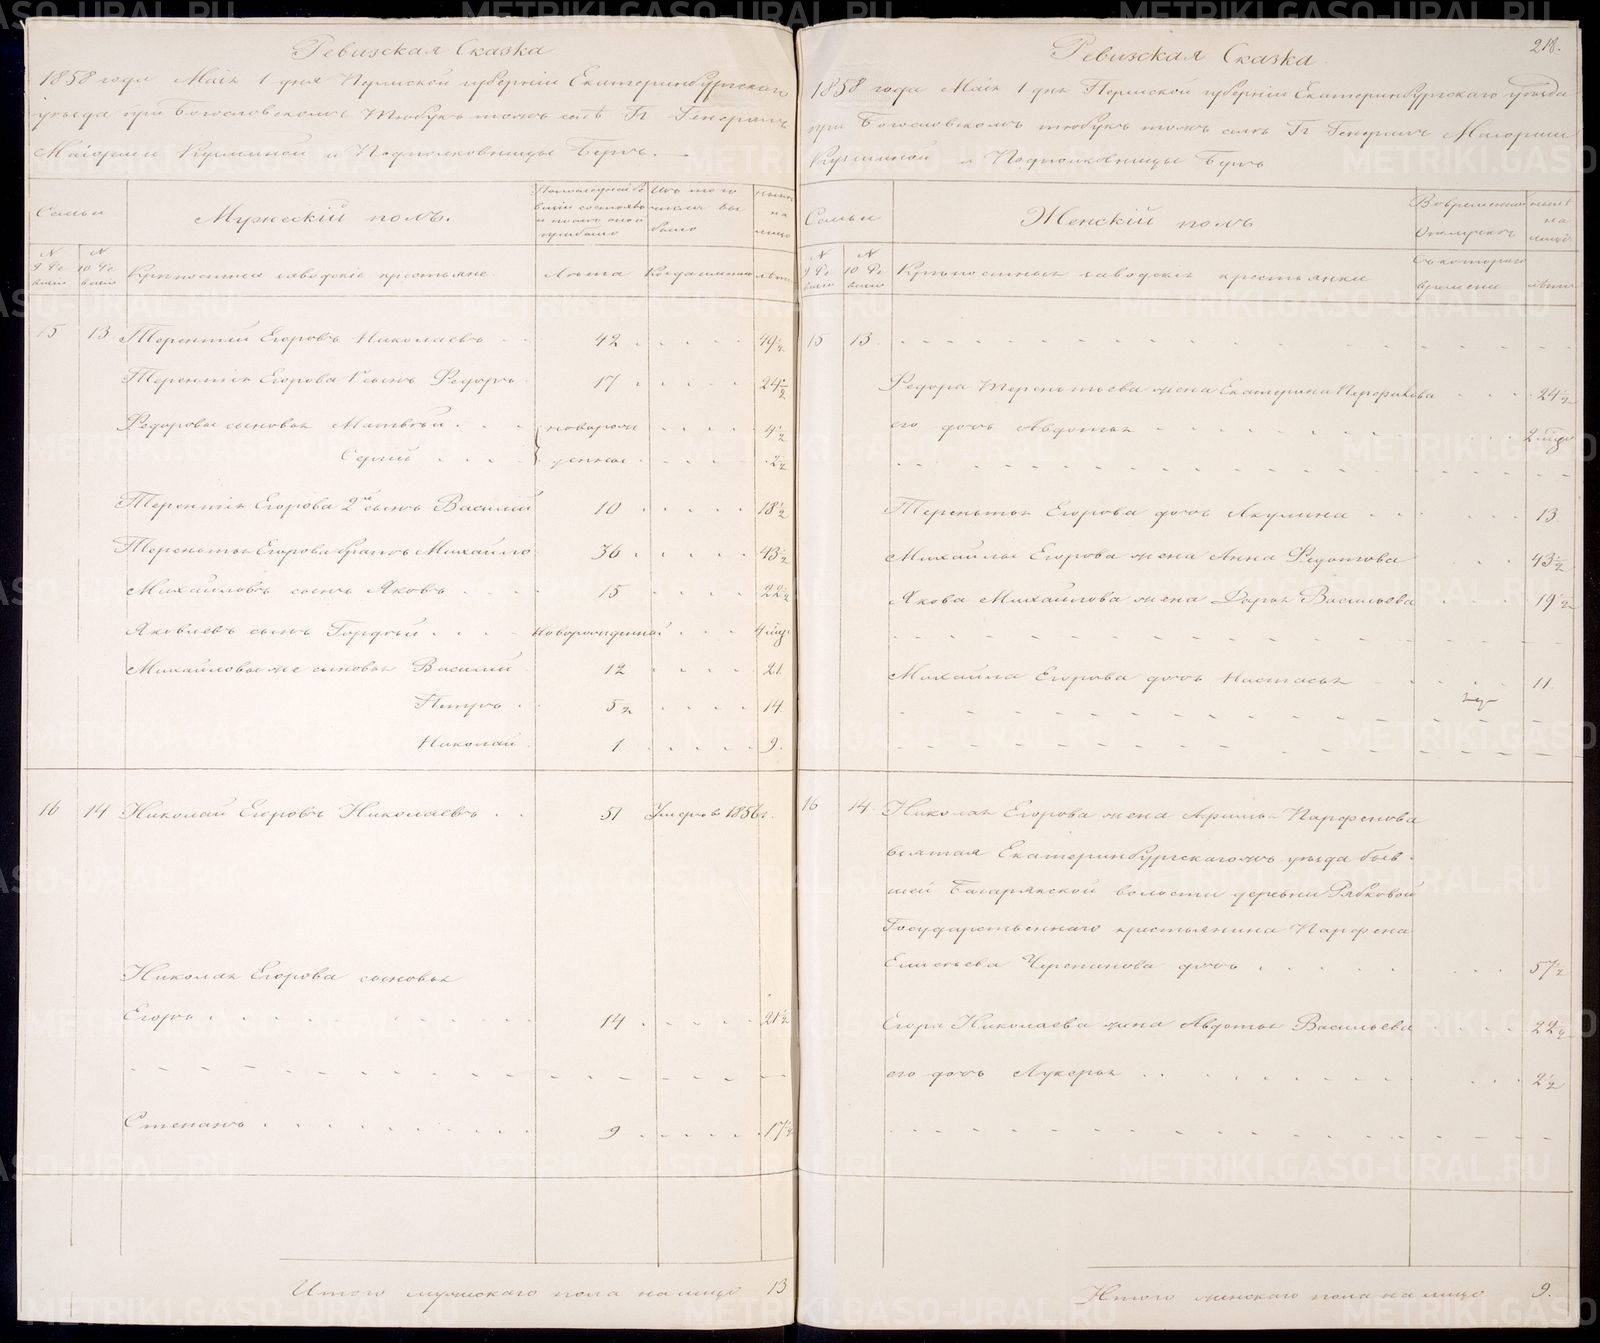 Ревизская Сказка
1858 года Маія 1 дня Пермской губерніи Екатеринбургскаго
уѣзда при Богословскомъ Тюбукътомъ селѣ Гг Генералъ
Маіорши Кузминой и Подполковницы Бергъ.
Семьи
Мужескій полъ.
По последней ре
визіи состояло
и после оной
прибыло
Изъ того
числа вы
было
ныне
на
лицо
N
9 Ре
визіи
N
10 Ре
визіи
Крѣпостныя заводскіе крестьяне.
Лѣта
Когда именно
лѣта
15 13 Терентій Егоровъ Николаевъ 42 49½
Терентія Егорова 1 сынъ Федоръ 17 24½
Федоровы сыновья Матвѣй новорож 4½
Сергій денные 2½
Терентія Егорова 2й сынъ Василій 10 18½
Терентья Егорова братъ Михайло 36 43½
Михайловъ сынъ Яковъ 15 22½
Яковлевъ сынъ Гордѣй новорожденной 4 мца
Михайловы же сыновья Василій 12 21
Петръ 5½ 14
Николай 1 9
16 14 Николай Егоровъ Николаевъ 51 Умеръ въ 1856 г.
Николая Егорова сыновья
Егоръ 14 21½
Степанъ 9 17½
Итого мужескаго пола на лицо 13
218.
Ревизская Сказка
1858 года Маія 1 дня Пермской губерніи Екатеринбургскаго уѣзда
при Богословскомъ тюбукътомъ селѣ Гг Генералъ Маіорши
Кузминой и Подполковницы Бергъ
Семьи
Женскій полъ
Во временной
отлучкѣ
ныне
на
лицо
N
9 Ре
визіи
N
10 Ре
визіи
Крѣпостныя заводскія крестьянки
Съ котораго
времени
лѣта
15 13
Федора Терентьева жена Екатерина Перфильева 24½
его дочь Авдотья 2 мца
Терентья Егорова дочь Акулина 13
Михайлы Егорова жена Анна Федотова 43½
Якова Михайлова жена Дарья Васильева 19½
Михайла Егорова дочь Настасья 11
16 14 Николая Егорова жена Афимья Парфенова
взятая Екатеринбургскагожъ уѣзда быв
шей Багарякской волости деревни Рябковой
Государственнаго крестьянина Парфена
Елисѣева Черепанова дочь 57½
Егора Николаева жена Авдотья Васильева 22½
его дочь Лукерья 2½
Итого женскаго пола на лицо 9.
METRIKI.GASO-URAL.RU